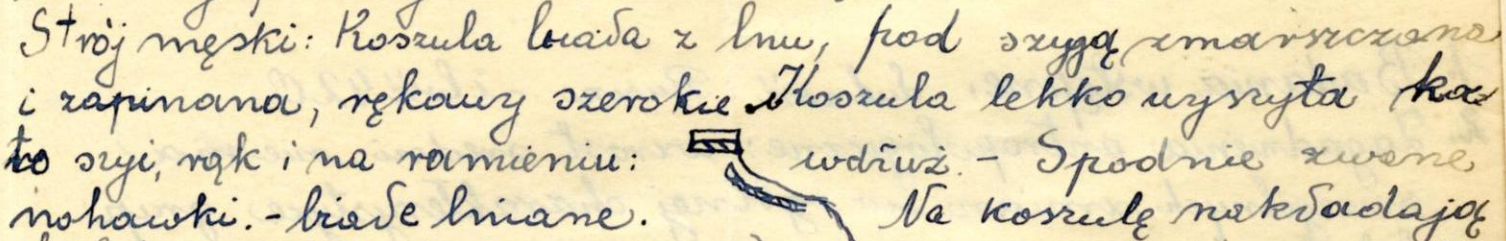 Strój męski: Koszula biała z lnu, pod szyją zmarszczona
i zapinana, rękawy szerokie. Koszula lekko wyszyta ko-
ło szyi, rąk i na ramieniu: wdłuż. - Spodnie zwane
nohawki. - białe lniane. Na koszulę nakładają